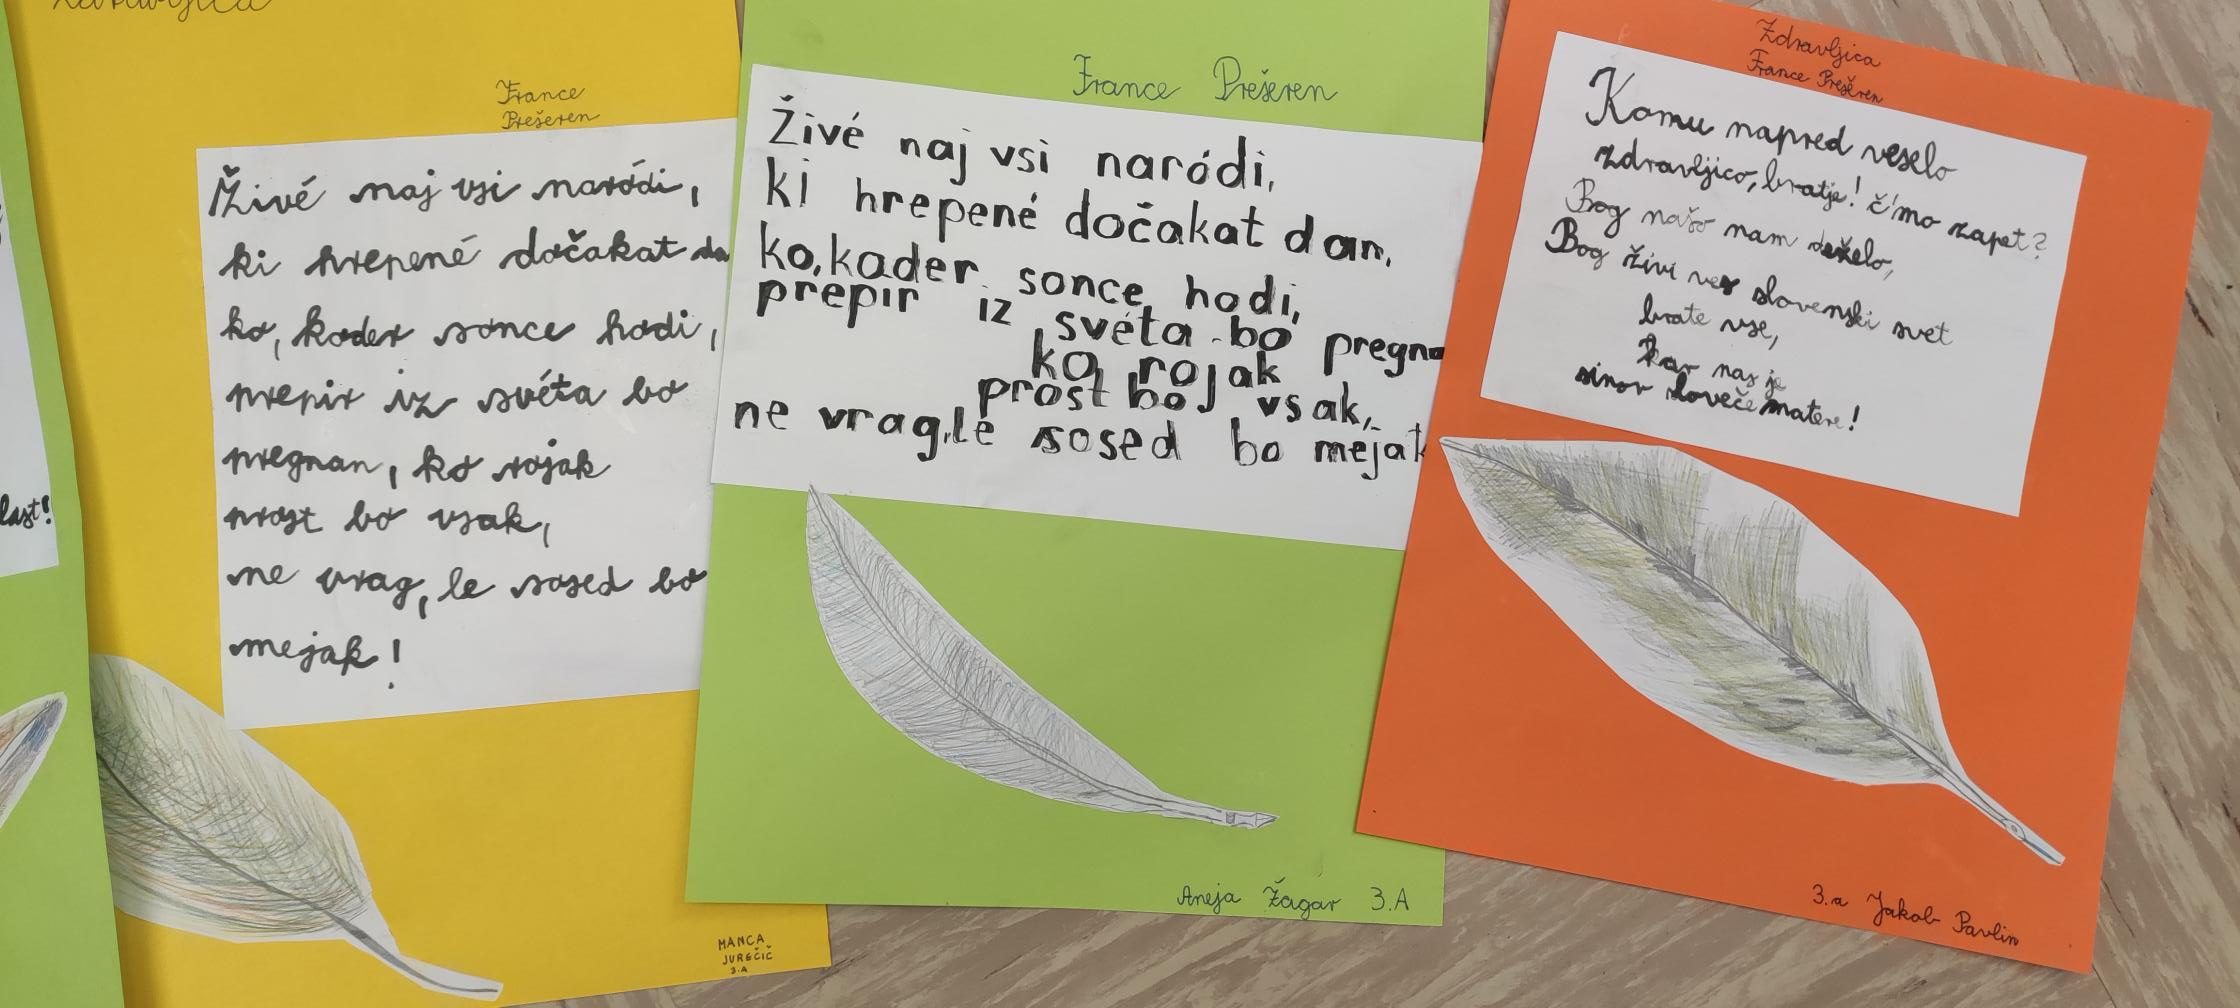 last!
Zdravljica
France
Prešeren
Živé naj vsi naródi,
ki hrepené dočakat da
ko, koder sonce hodi,
prepir iz svéta bo
pregnan, ko rojak
prost bo vsak,
ne vrag, le sosed bo
mejak!
MANCA
JUREČIČ
3.A
France Prešeren
Živé naj vsi naródi,
ki hrepené dočakat dan,
ko, koder sonce hodi,
prepir iz svéta bo pregna
ko rojak
prost boj vsak,
ne vrag, le sosed bo mejak
Aneja Žagar 3.A
Zdravljica
France Prešeren
Komu napred veselo
zdravljico, bratje! č'mo zapet?
Bog našo nam deželo,
Bog živi ves slovenski svet
brate vse,
kar nas je
sinov sloveče matere!
3.a Jakob Pavlin